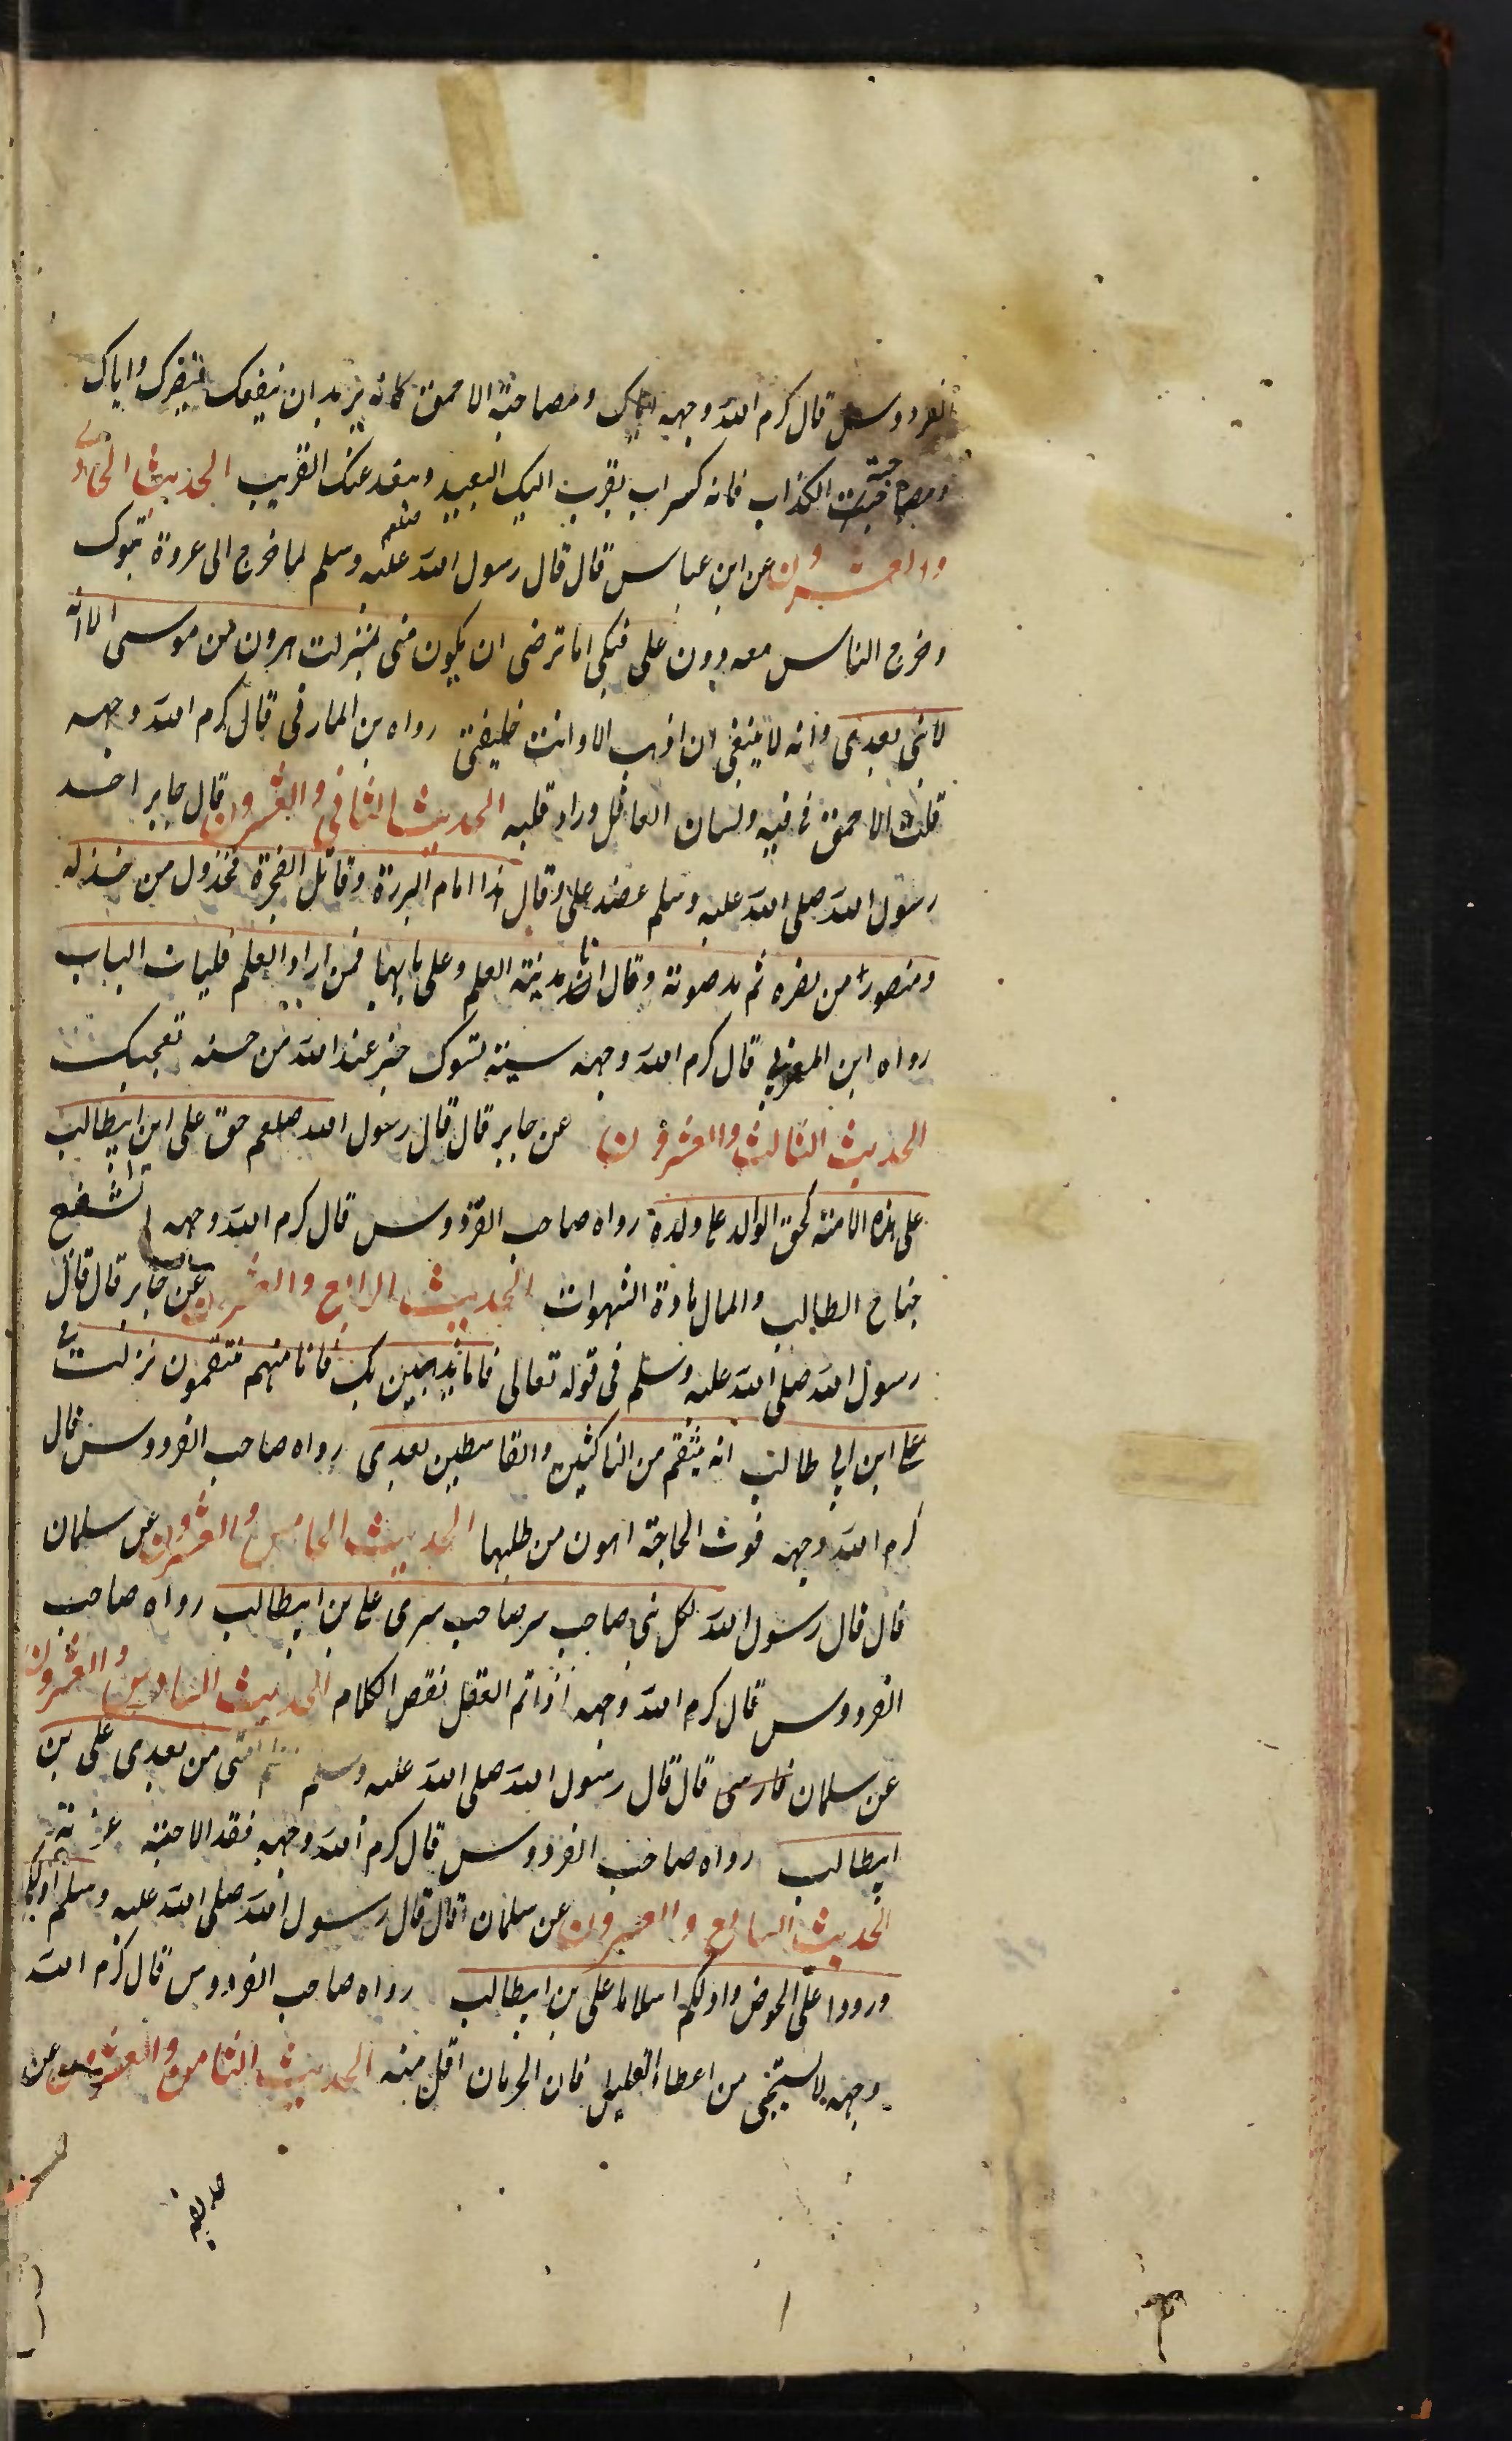 الفردوس قال كرم الله وجهه اياك ومصاحبة الاحمق كانه يريد ان ينفعك فيضرك واياك
ومصاحبة الكذاب فانه كسراب يقرب اليك البعيد ويبعد عنك القريب الحديث الحادى
والعشرون عن ابن عباس قال قال رسول الله صلعم عليه وسلم لما خرج الى عروة تبوك
وخرج الناس معه دون على فبكى اما ترضى ان يكون منى بمنزلت هرون من موسى الا انه
لا نبى بعدى وانه لا ينبغى ان اذهب الا وانت خليفتى رواه بن المازفى قال كرم الله وجهه
قلب الاحمق فى فيه ولسان العاقل وراء قلبه الحديث الثانى والعشرون قال جابر اخذ
رسول الله صلى الله عليه وسلم عضد على وقال هذا امام البررة وقاتل الفجرة مخذول من خذله
ومنصورا من نصره ثم مد صوته وقال انا مدينة العلم وعلى بابها فمن اراد العلم فليات الباب
رواه ابن المغزلى قال كرم الله وجهه سيئة تسوك خير عند الله من حسنه تعجبك
الحديث الثالث والعشرون عن جابر قال قال رسول الله صلعم حق على ابن ابيطالب
على هذه الامة كحق الوالد على ولده رواه صاحب الفردوس قال كرم الله وجهه الشفيع
جناح الطالب والمال مادة الشهوات الحديث الرابع والعشرون عن جابر قال قال
رسول الله صلى الله عليه وسلم فى قوله تعالى فاما نذهبن بك فانا منهم منتقمون نزلت فى
على ابن ابى طالب انه ينتقم من الناكثين والقاسطين بعدى رواه صاحب الفردوس قال
كرم الله وجهه فوت الحاجة اهون من طلبها الحديث الخامس والعشرون عن سلمان
قال قال رسول الله لكل نبى صاحب سر صاحب سرى على بن ابيطالب رواه صاحب
الفردوس قال كرم الله وجهه اذا تم العقل نقص الكلام الحديث السادس والعشرون
عن سلمان فارسى قال قال رسول الله صلى الله عليه وسلم امتى من بعدى على بن
ابيطالب رواه صاحب الفردوس قال كرم الله وجهه فقد الاحبة غربة
الحديث السابع والعشرون عن سلمان قال قال رسول الله صلى الله عليه وسلم اولكم
ورودا على الحوض واولكم اسلاما على بن ابيطالب رواه صاحب الفردوس قال كرم الله
وجهه لا يستحى من اعطاء القليل فان الحرمان اقل منه الحديث الثامن والعشرون عن
حذيفه